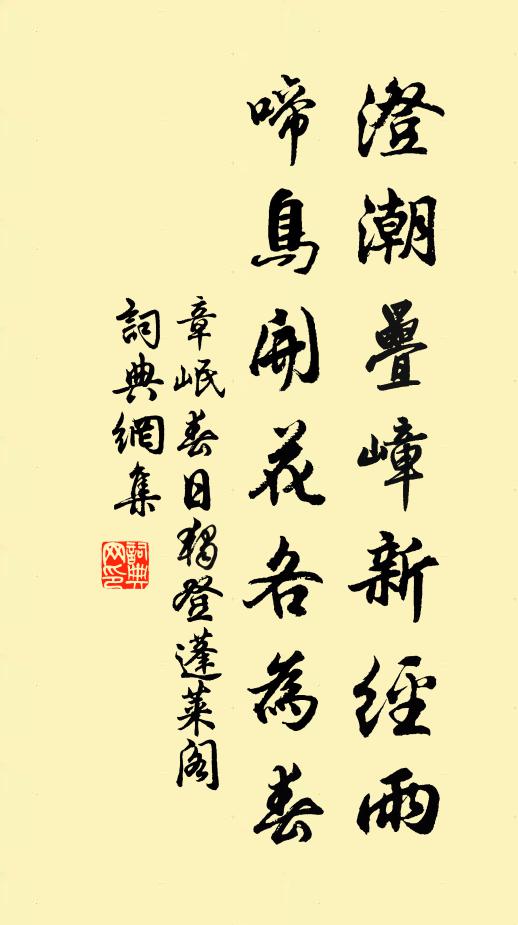 澄潮疊嶂新經雨
啼鳥開花各為春
章岷春日獨登蓬萊閣
詞典網集
詞典網印